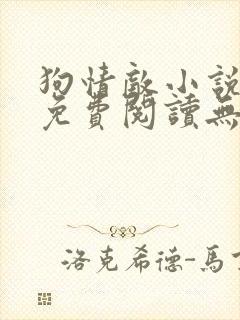 狗情敵小說
免費閱讀無
洛克希德-馬